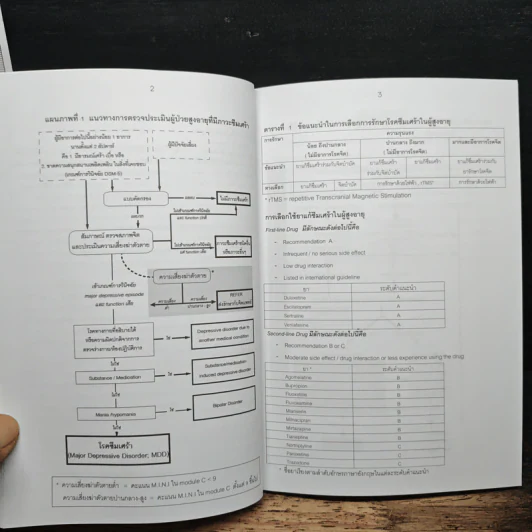 2
แผนภาพที่ 1 แนวทางการตรวจประเมินผู้ป่วยสูงอายุที่มีภาวะซึมเศร้า
ผู้มีอาการต่อไปนี้อย่างน้อย 1 อาการ
นานตั้งแต่ 2 สัปดาห์
คือ 1. มีอารมณ์เศร้า เบื่อ หรือ
(เกณฑ์การวินิจฉัย DSM-5)
ผู้มีปัจจัยเสี่ยง
แบบคัดกรอง
ไม่มีภาวะซึมเศร้า
สัมภาษณ์ ตรวจสภาพจิต
และประเมินความเสี่ยงฆ่าตัวตาย
ความเสี่ยงฆ่าตัวตาย *
เข้าเกณฑ์การวินิจฉัย
major depressive episode
และ function เสีย
REFER
ส่งรักษากับจิตแพทย์
โรคทางกายที่อธิบายได้
หรือความผิดปกติจากการ
ตรวจร่างกาย/ห้องปฏิบัติการ
ใช่
Depressive disorder due to
another medical condition
ไม่ใช่
Substance / Medication
ใช่
Substance/medication-
induced depressive disorder
ไม่ใช่
Mania /hypomania
ใช่
Bipolar Disorder
ไม่ใช่
โรคซึมเศร้า
(Major Depressive Disorder; MDD)
* ความเสี่ยงฆ่าตัวตายต่ำ = คะแนน M.I.N.I ใน module C < 9
ความเสี่ยงฆ่าตัวตายปานกลาง-สูง = คะแนน M.I.N.I ใน module C ตั้งแต่ 9 ขึ้นไป
3
ตารางที่ 1 ข้อแนะนำในการเลือกการรักษาโรคซึมเศร้าในผู้สูงอายุ
การรักษา
ความรุนแรง
น้อย ถึงปานกลาง
(ไม่มีอาการโรคจิต)
ปานกลาง ถึงมาก
(ไม่มีอาการโรคจิต)
มากและมีอาการโรคจิต
ข้อแนะนำ
ยาแก้ซึมเศร้าร่วมกับจิตบำบัด
ยาแก้ซึมเศร้าร่วมกับจิตบำบัด
ยาแก้ซึมเศร้า
ยาแก้ซึมเศร้าร่วมกับยารักษาโรคจิต
ทางเลือก
ยาแก้ซึมเศร้า
จิตบำบัด
การรักษาด้วยไฟฟ้า, rTMS*
การรักษาด้วยไฟฟ้า
* rTMS = repetitive Transcranial Magnetic Stimulation
การเลือกใช้ยาแก้ซึมเศร้าในผู้สูงอายุ
First-line Drug มีลักษณะดังต่อไปนี้คือ
- Recommendation A
- Infrequent / no serious side effect
- Low drug interaction
- Listed in international guideline
ยา ระดับคำแนะนำ
Duloxetine A
Escitalopram A
Sertraline A
Venlafaxine A
Second-line Drug มีลักษณะดังต่อไปนี้คือ
- Recommendation B or C,
- Moderate side effect / drug interaction or less experience using the drug
ยา * ระดับคำแนะนำ
Agomelatine B
Bupropion B
Fluoxetine B
Fluvoxamine B
Mianserin B
Milnacipran B
Mirtazapine B
Tianeptine B
Nortriptyline C
Paroxetine C
Trazodone C
* ชื่อยาเรียงตามลำดับอักษรภาษาอังกฤษในแต่ละระดับคำแนะนำ